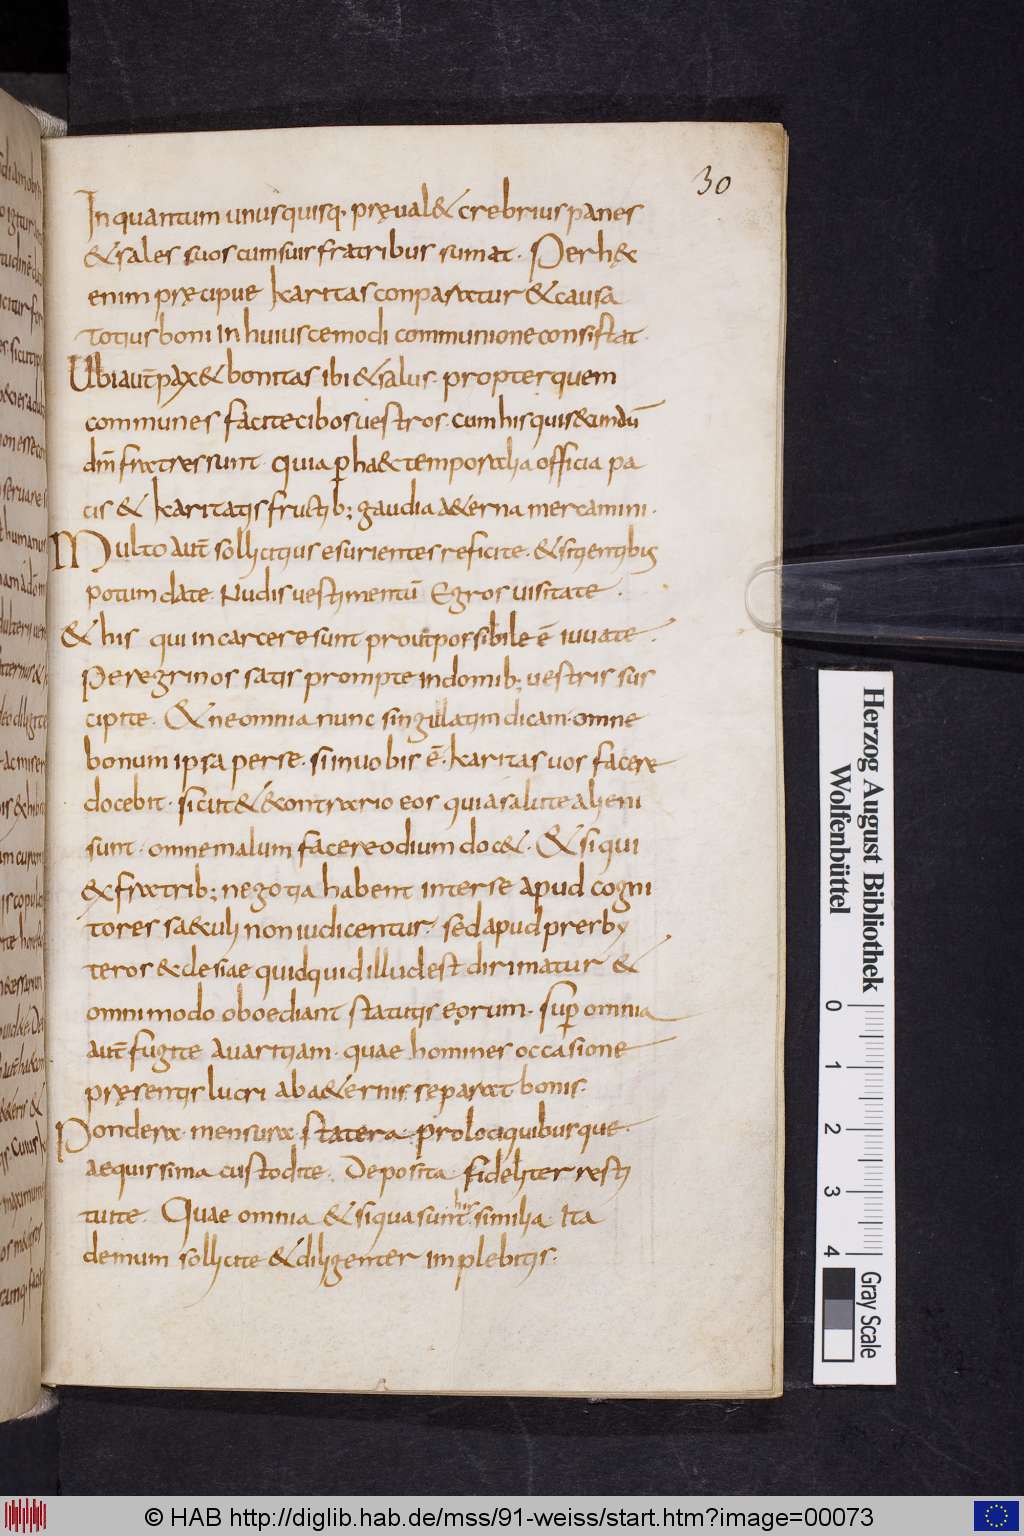 30
In quantum unusquisq· prę ual& crebrius panes
& sales suos cum suis fratribus sumat· Per hęc
enim pręcipue karitas conparatur & causa
totius boni in huiuscemodi communione consistat·
Ubi aut̄ pax & bonitas ibi & salus· propter quem
communes facite cibos uestros· cum his qui s&undū
dm̄ fratres sunt· quia p̱ ha& temporalia officia pa
cis & karitatis fructib; gaudia a&erna mercamini·
Multo aut̄ sollicitius esurientes reficite· & sitientibus
potum date· Nudis uestimentū Egros uisitate·
& his qui in carcere sunt prout possibile ē iuuate·
Peregrinos satis prompte in domib; uestris sus
cipite· & ne omnia nunc singillatim dicam· omne
bonum ipsa per se· si in uobis ē· karitas uos facere
docebit· sicut & & contrario eos qui a salute alieni
sunt· omne malum facere odium doc&· & si qui
& fratrib; negotia habent inter se apud cogni
tores sa&uli non iudicentur· sed apud presby
teros &clesiae quidquid illud est dirimatur &
omni modo oboediant statutis eorum· sup̱ omnia
aut̄ fugite auaritiam· quae homines occasione
pręsentis lucri ab a&ernis separat bonis·
Pondera· mensuras· statera· pro loci quibusque·
aequissima custodite· Deposita· fideliter resti
tuite· Quae omnia & siqua sunt his similia· Ita
demum sollicite & diligenter implebitis·
Herzog August Bibliothek
Wolfenbüttel
0 1 2 3 4
Gray Scale
© HAB http://diglib.hab.de/mss/91-weiss/start.htm?image=00073